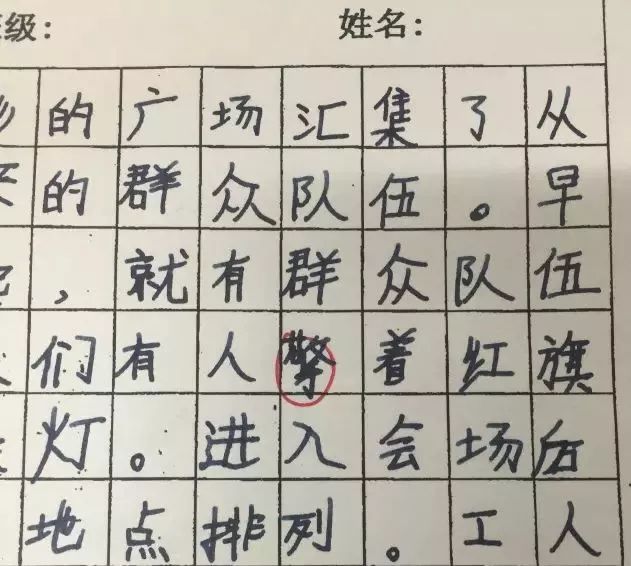 级: 姓名:
的广场汇集了从
的群众队伍。早
,就有群众队伍
们有人擎着红旗
灯。进入会场后
地点排列。工人